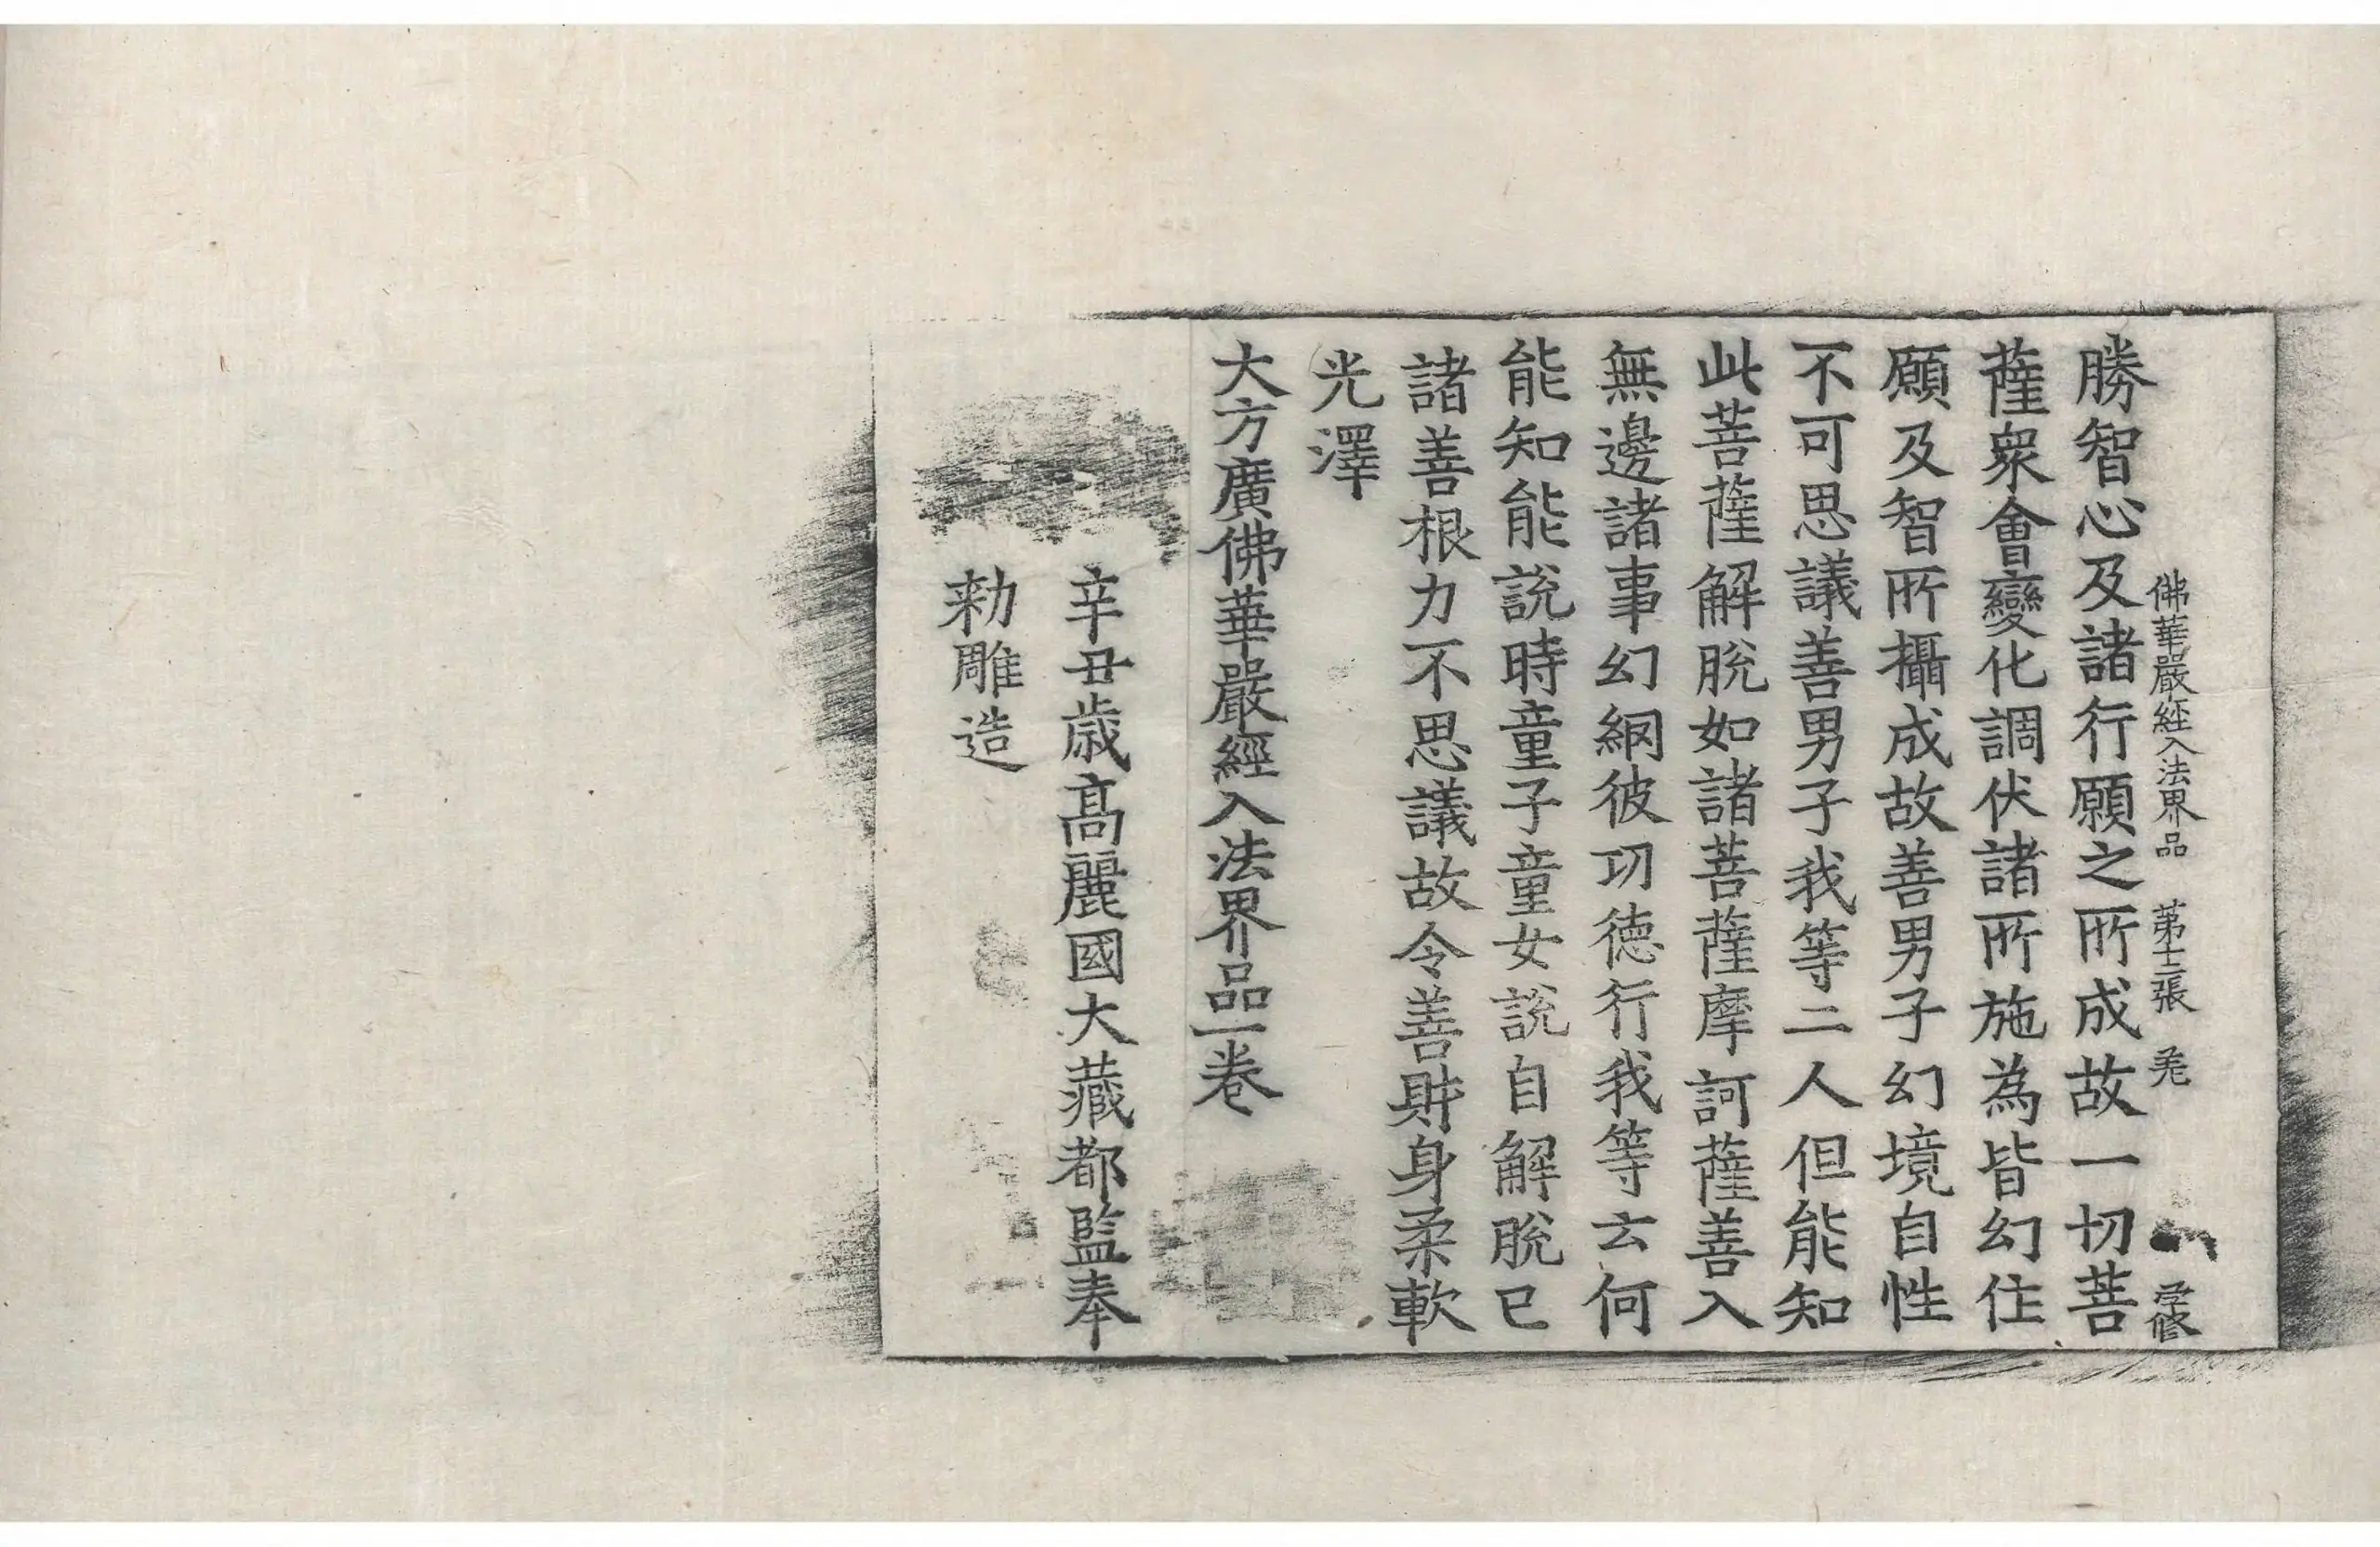 佛華嚴經入法界品 第十二張 羌 孝修
勝智心及諸行願之所成故一切菩
薩衆會變化調伏諸所施為皆幻住
願及智所攝成故善男子幻境自性
不可思議善男子我等二人但能知
此菩薩解脫如諸菩薩摩訶薩善入
無邊諸事幻網彼功德行我等云何
能知能說時童子童女說自解脫已
諸善根力不思議故令善財身柔軟
光澤
大方廣佛華嚴經入法界品一卷
辛丑歲高麗國大藏都監奉
勑雕造